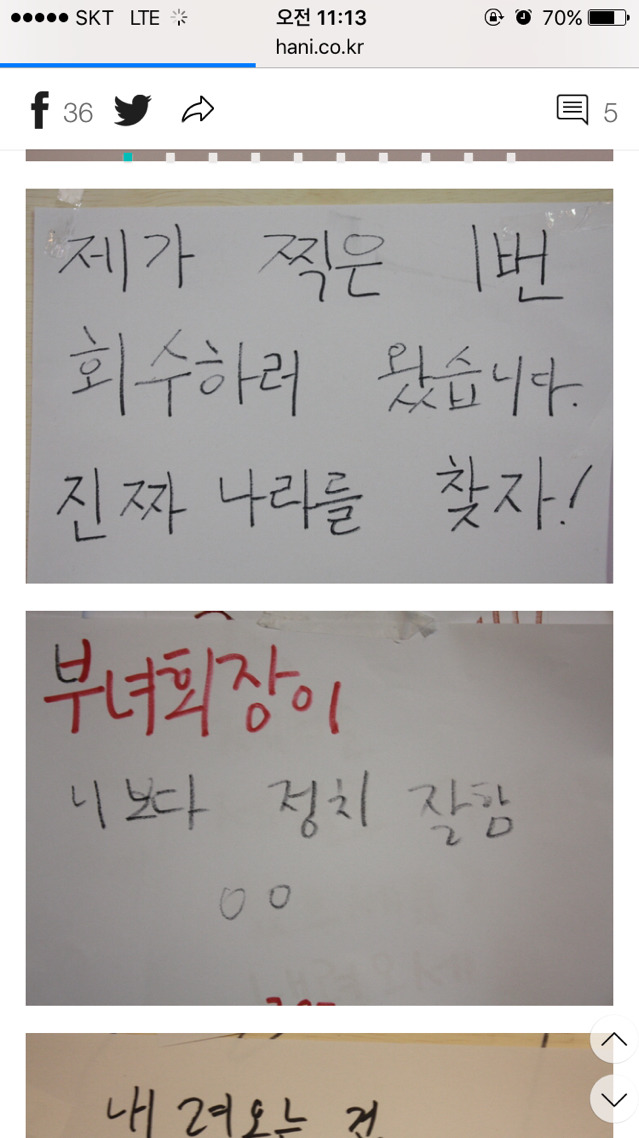 SKT LTE 오전 11:13 70%
hani.co.kr
36 5
제가 찍은 1번
회수하러 왔습니다.
진짜 나라를 찾자!
부녀회장이
니보다 정치 잘함
ㅇㅇ
내려오는 건